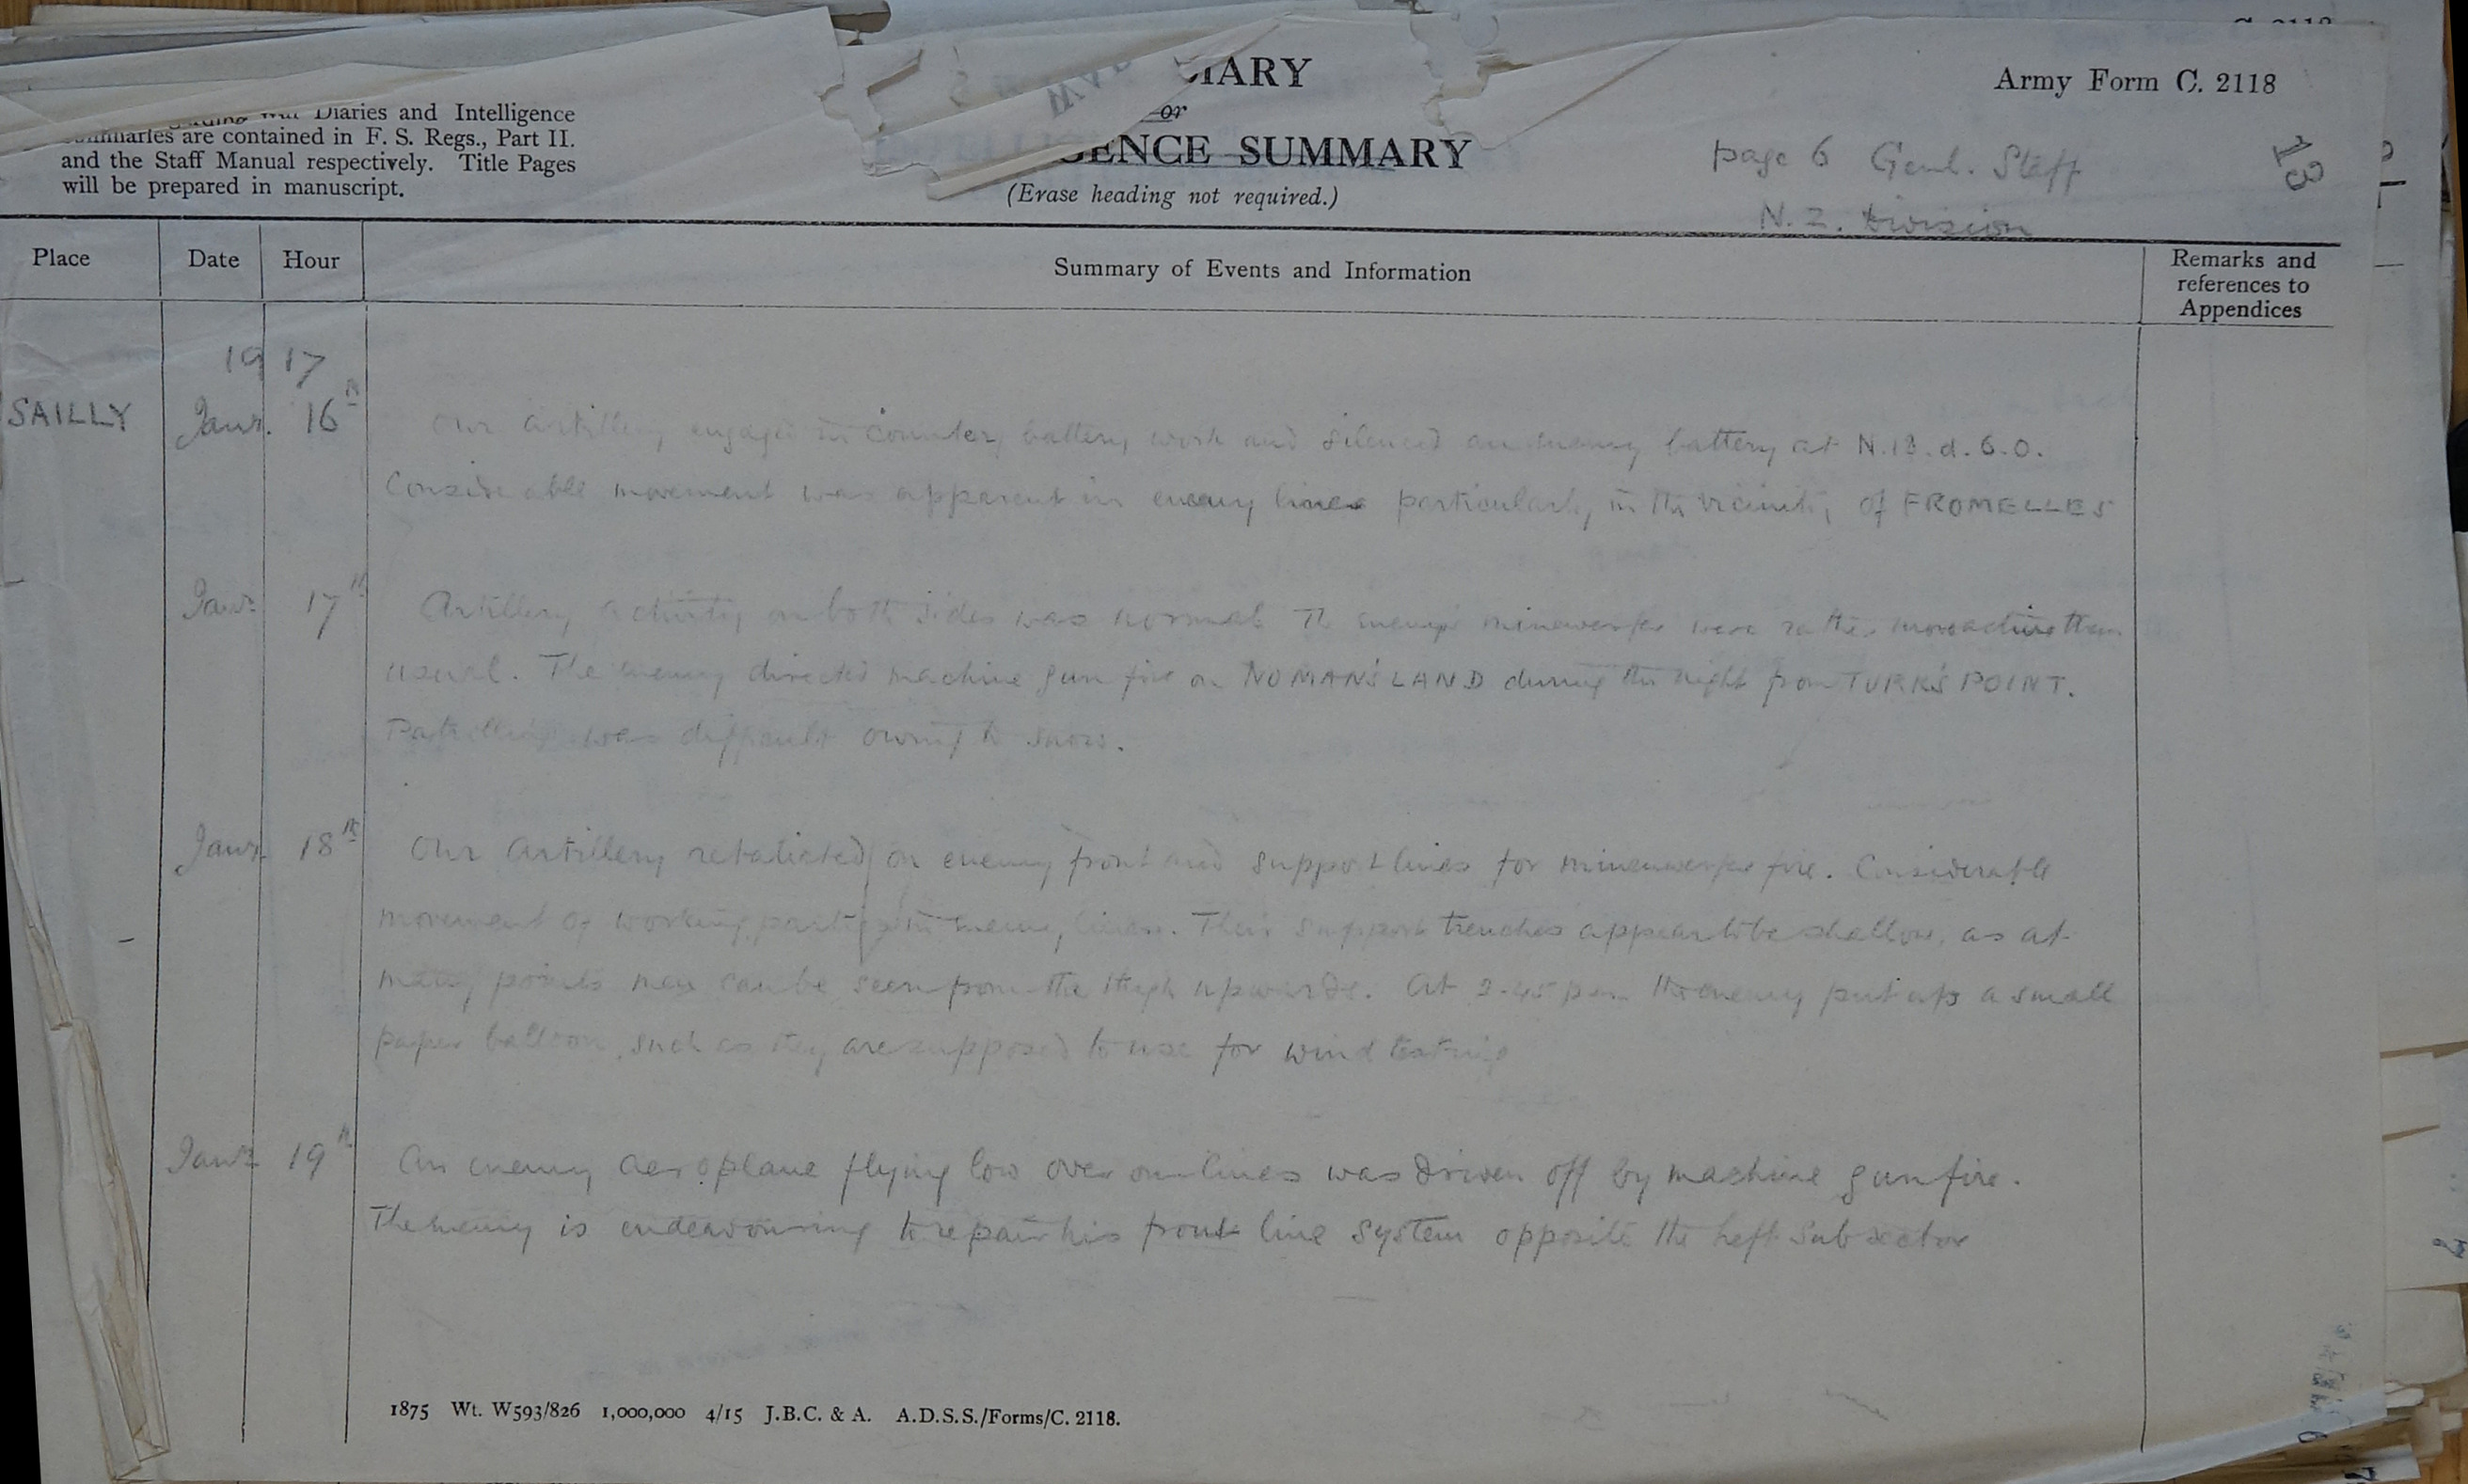 IARY
Army Form C. 2118
Diaries and Intelligence
or
Summaries are contained in F. S. Regs., Part II.
GENCE SUMMARY
and the Staff Manual respectively. Title Pages
page 6 Genl. Staff
13
will be prepared in manuscript.
(Erase heading not required.)
N. Z. Division
Place
Date
Hour
Summary of Events and Information
Remarks and references to Appendices
1917
SAILLY Jany. 16th Our artillery engaged in counter battery work and silenced an enemy battery at N.18.d.6.0.
Considerable movement was apparent in enemy lines particularly in the vicinity of FROMELLES
Jany 17th Artillery activity on both sides was normal The enemy's minenwerfer were rather more active than
usual. The enemy directed machine gun fire on NO MAN'S LAND during the night from TURK'S POINT.
Patrolling was difficult owing to snow.
Jany. 18th Our Artillery retaliated on enemy front and support lines for minenwerfer fire. Considerable
movement of working parties in enemy lines. Their support trenches appear to be shallow, as at
many points men can be seen from the thigh upwards. At 2-45 p.m. the enemy put up a small
paper balloon, such as they are supposed to use for wind testing
Jany 19th An enemy aeroplane flying low over our lines was driven off by machine gun fire.
The enemy is endeavouring to repair his front line system opposite the left subsector
1875 Wt. W593/826 1,000,000 4/15 J.B.C. & A. A.D.S.S./Forms/C. 2118.